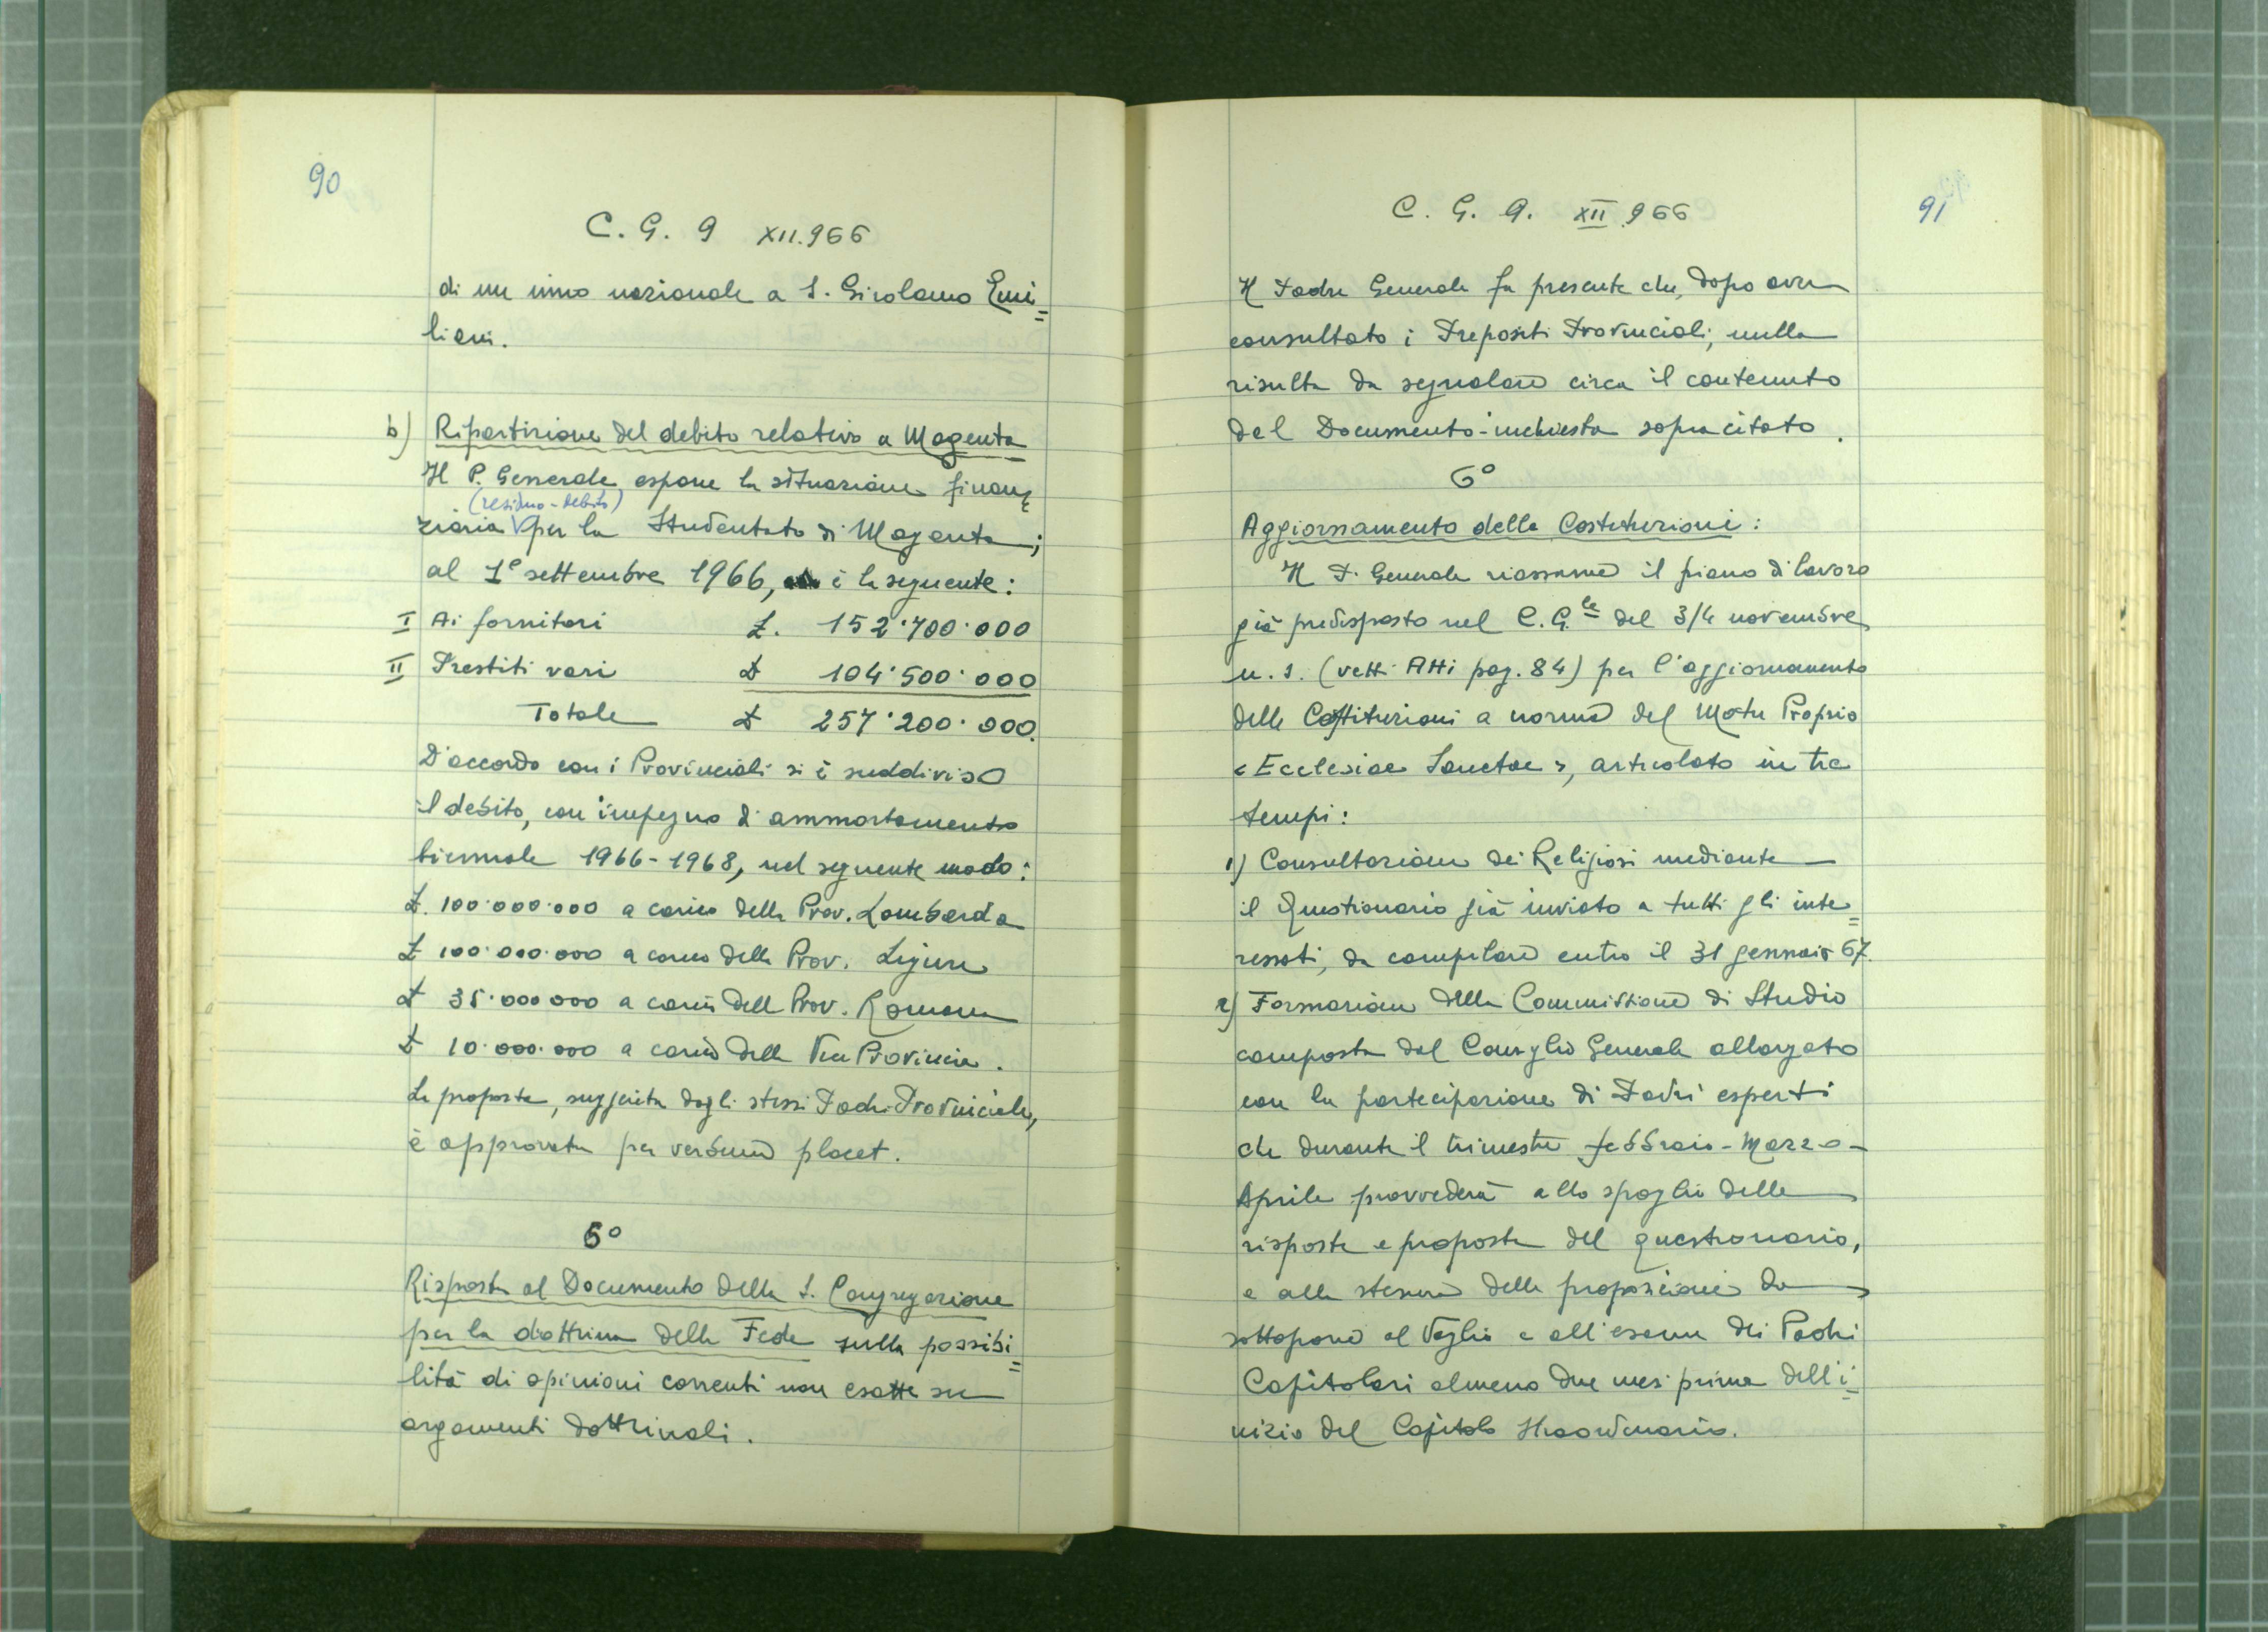 90
C. G. 9 XII.966
di un inno nazionale a S. Girolamo Emi=
liani.
b) Ripartizione del debito relativo a Magenta
Il P. Generale espone la situazione finan=
(residuo-debito)
ziaria per lo Studentato di Magenta;
al 1° settembre 1966, è la seguente:
I Ai fornitori £. 152.700.000
II Prestiti vari £ 104.500.000
Totale £ 257.200.000.
D'accordo con i Provinciali si è suddiviso
il debito, con impegno di ammortamento
biennale 1966-1968, nel seguente modo:
£. 100.000.000 a carico della Prov. Lombarda
£ 100.000.000 a carico della Prov. Ligure
£ 35.000000 a carico della Prov. Romana
£ 10.000.000 a carico della Provincia.
La proposta, suggerita dagli stessi Padri Provinciali,
è approvata per verbum placet.
5°
Risposta al Documento della S. Congregazione
per la dottrina della Fede sulla possibi=
lità di opinioni correnti non esatte su
argomenti dottrinali.
C. G. 9. XII 966
91
Il Padre Generale fa presente che, dopo aver
consultato i Prepositi Provinciali, nulla
risulta da segnalare circa il contenuto
del Documento-inchiesta sopracitato.
6°
Aggiornamento delle Costituzioni:
Il P. Generale riassume il piano di lavoro
già predisposto nel C. G.le del 3/4 novembre
u. s. (vetti Atti pag. 84) per l'aggiornamento
delle Costituzioni a norma del Motu Proprio
«Ecclesiae Sanctae», articolato in tre
tempi:
1) Consultazione dei Religiosi mediante
il Questionario già inviato a tutti gli inte=
ressati, da compilare entro il 31 gennaio 67.
2) Formazione della Commissione di Studio
composta dal Consiglio Generale allargato
con la partecipazione di Padri esperti
che durante il trimestre febbraio-Marzo-
Aprile provvederà allo spoglio delle
risposte e proposte del questionario,
e alla stesura delle proposizioni da
sottoporre al vaglio e all'esame dei Padri
Capitolari almeno due mesi prima dell'i=
nizio del Capitolo Straordinario.